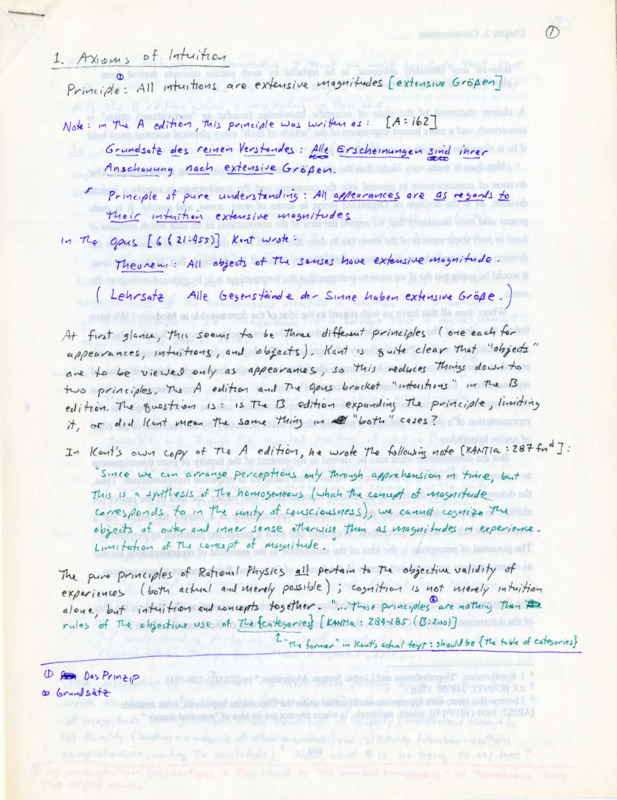 ①
1. Axioms of Intuition
①
Principle: All intuitions are extensive magnitudes [extensive Größen]
Note: in The A edition, this principle was written as: [A:162]
Grundsatz des reinen Verstandes: Alle Erscheinungen sind ihrer
Anschauung nach extensive Größen.
Principle of pure understanding: All appearances are as regards to
Their intuition extensive magnitudes
In The Opus [6 (21:455)] Kant wrote:
Theorem: All objects of The senses have extensive magnitude.
(Lehrsatz Alle Gegenstände der Sinne haben extensive Größe.)
At first glance, This seems to be Three different principles (one each for
appearances, intuitions, and objects). Kant is quite clear That "objects"
are to be viewed only as appearances, so This reduces Things down to
two principles. The A edition and The Opus bracket "intuitions" in The B
edition. The question is: is The B edition expanding The principle, limiting
it, or did Kant mean the same Thing in "both" cases?
In Kant's own copy of The A edition, he wrote The following note [KANT1a:287 fn d]:
"Since we can arrange perceptions only Through apprehension in time, but
This is a synthesis of The homogeneous (which The concept of magnitude
corresponds to in The unity of consciousness), we cannot cognize The
objects of outer and inner sense otherwise Than as magnitudes in experience.
Limitation of The concept of magnitude."
The pure principles of Rational Physics all pertain to The objective validity of
experiences (both actual and merely possible); cognition is not merely intuition
alone, but intuition and concepts together. "...These principles are nothing Than
②
rules of The objective use of The {categories} [KANT1a: 284-285 (B:200)]
"The former" in Kant's actual text: should be {The table of categories}
① Das Prinzip
② Grundsatz